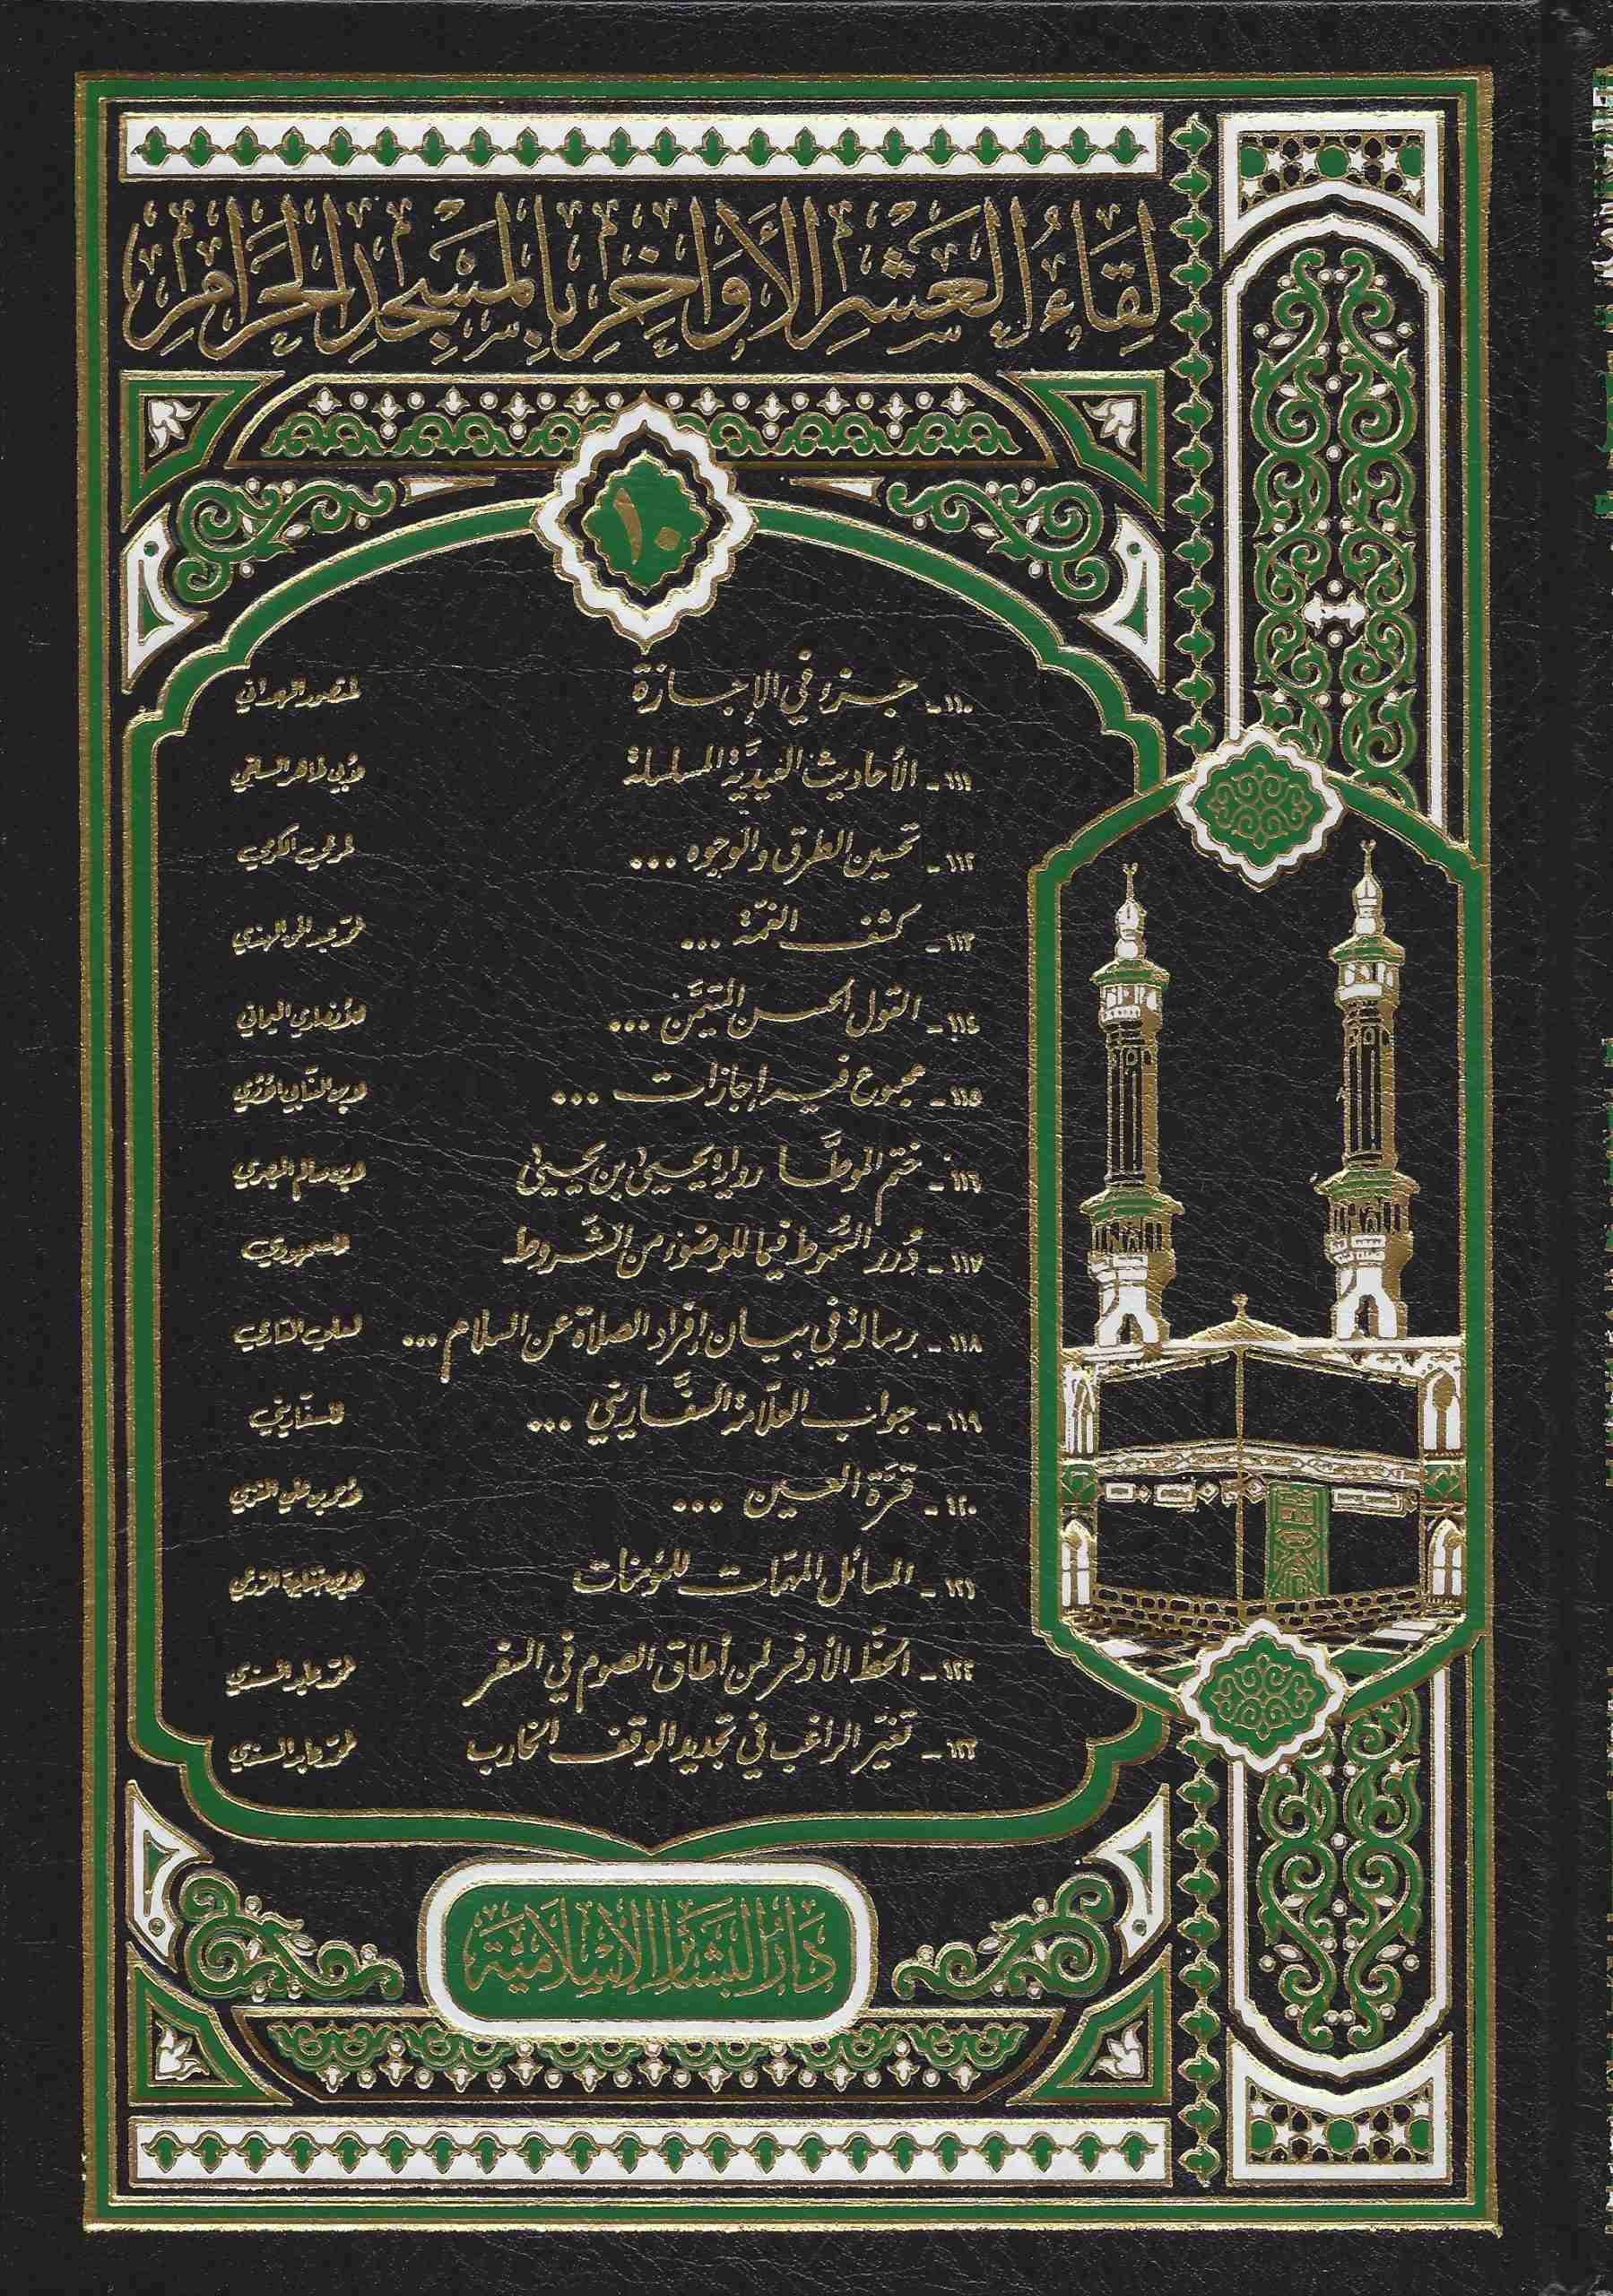 لِقَاءُ العَشْرِ الأَوَاخِرِ بِالمَسْجِدِ الحَرَامِ
١٠
١١٠ - جزء في الإجازة لمنصور الهمداني
١١١ - الأحاديث العيديَّة المسلسلة لأبي طاهر السلفي
١١٢ - تحسين الطرق والوجوه ... لمرعي الكرمي
١١٣ - كشف الغمّة ... لمحمد عبد الحي الهندي
١١٤ - القول الحسن المتيمَّن ... للأنصاري اليماني
١١٥ - مجموع فيه إجازات ...
١١٦ - ختم الموطَّأ رواية يحيى بن يحيى لابن سالم البصري
١١٧ - دُرر السُّموط فيما للوضوء من الشّروط للسمهودي
١١٨ - رسالة في بيان إفراد الصلاة عن السلام ... لعلي القاري
١١٩ - جواب العلّامة السَّفَّاريني ... للسفّاريني
١٢٠ - قرّة العين ...
١٢١ - المسائل المهمّات للمؤمنات
١٢٢ - الحظّ الأوفر لمن أطاق الصوم في السفر لمحمد عابد السندي
١٢٣ - تغيّر الراغب في تجديد الوقف الخارب لمحمد عابد السندي
دَارُ البَشَائِرِ الإِسْلَامِيَّة